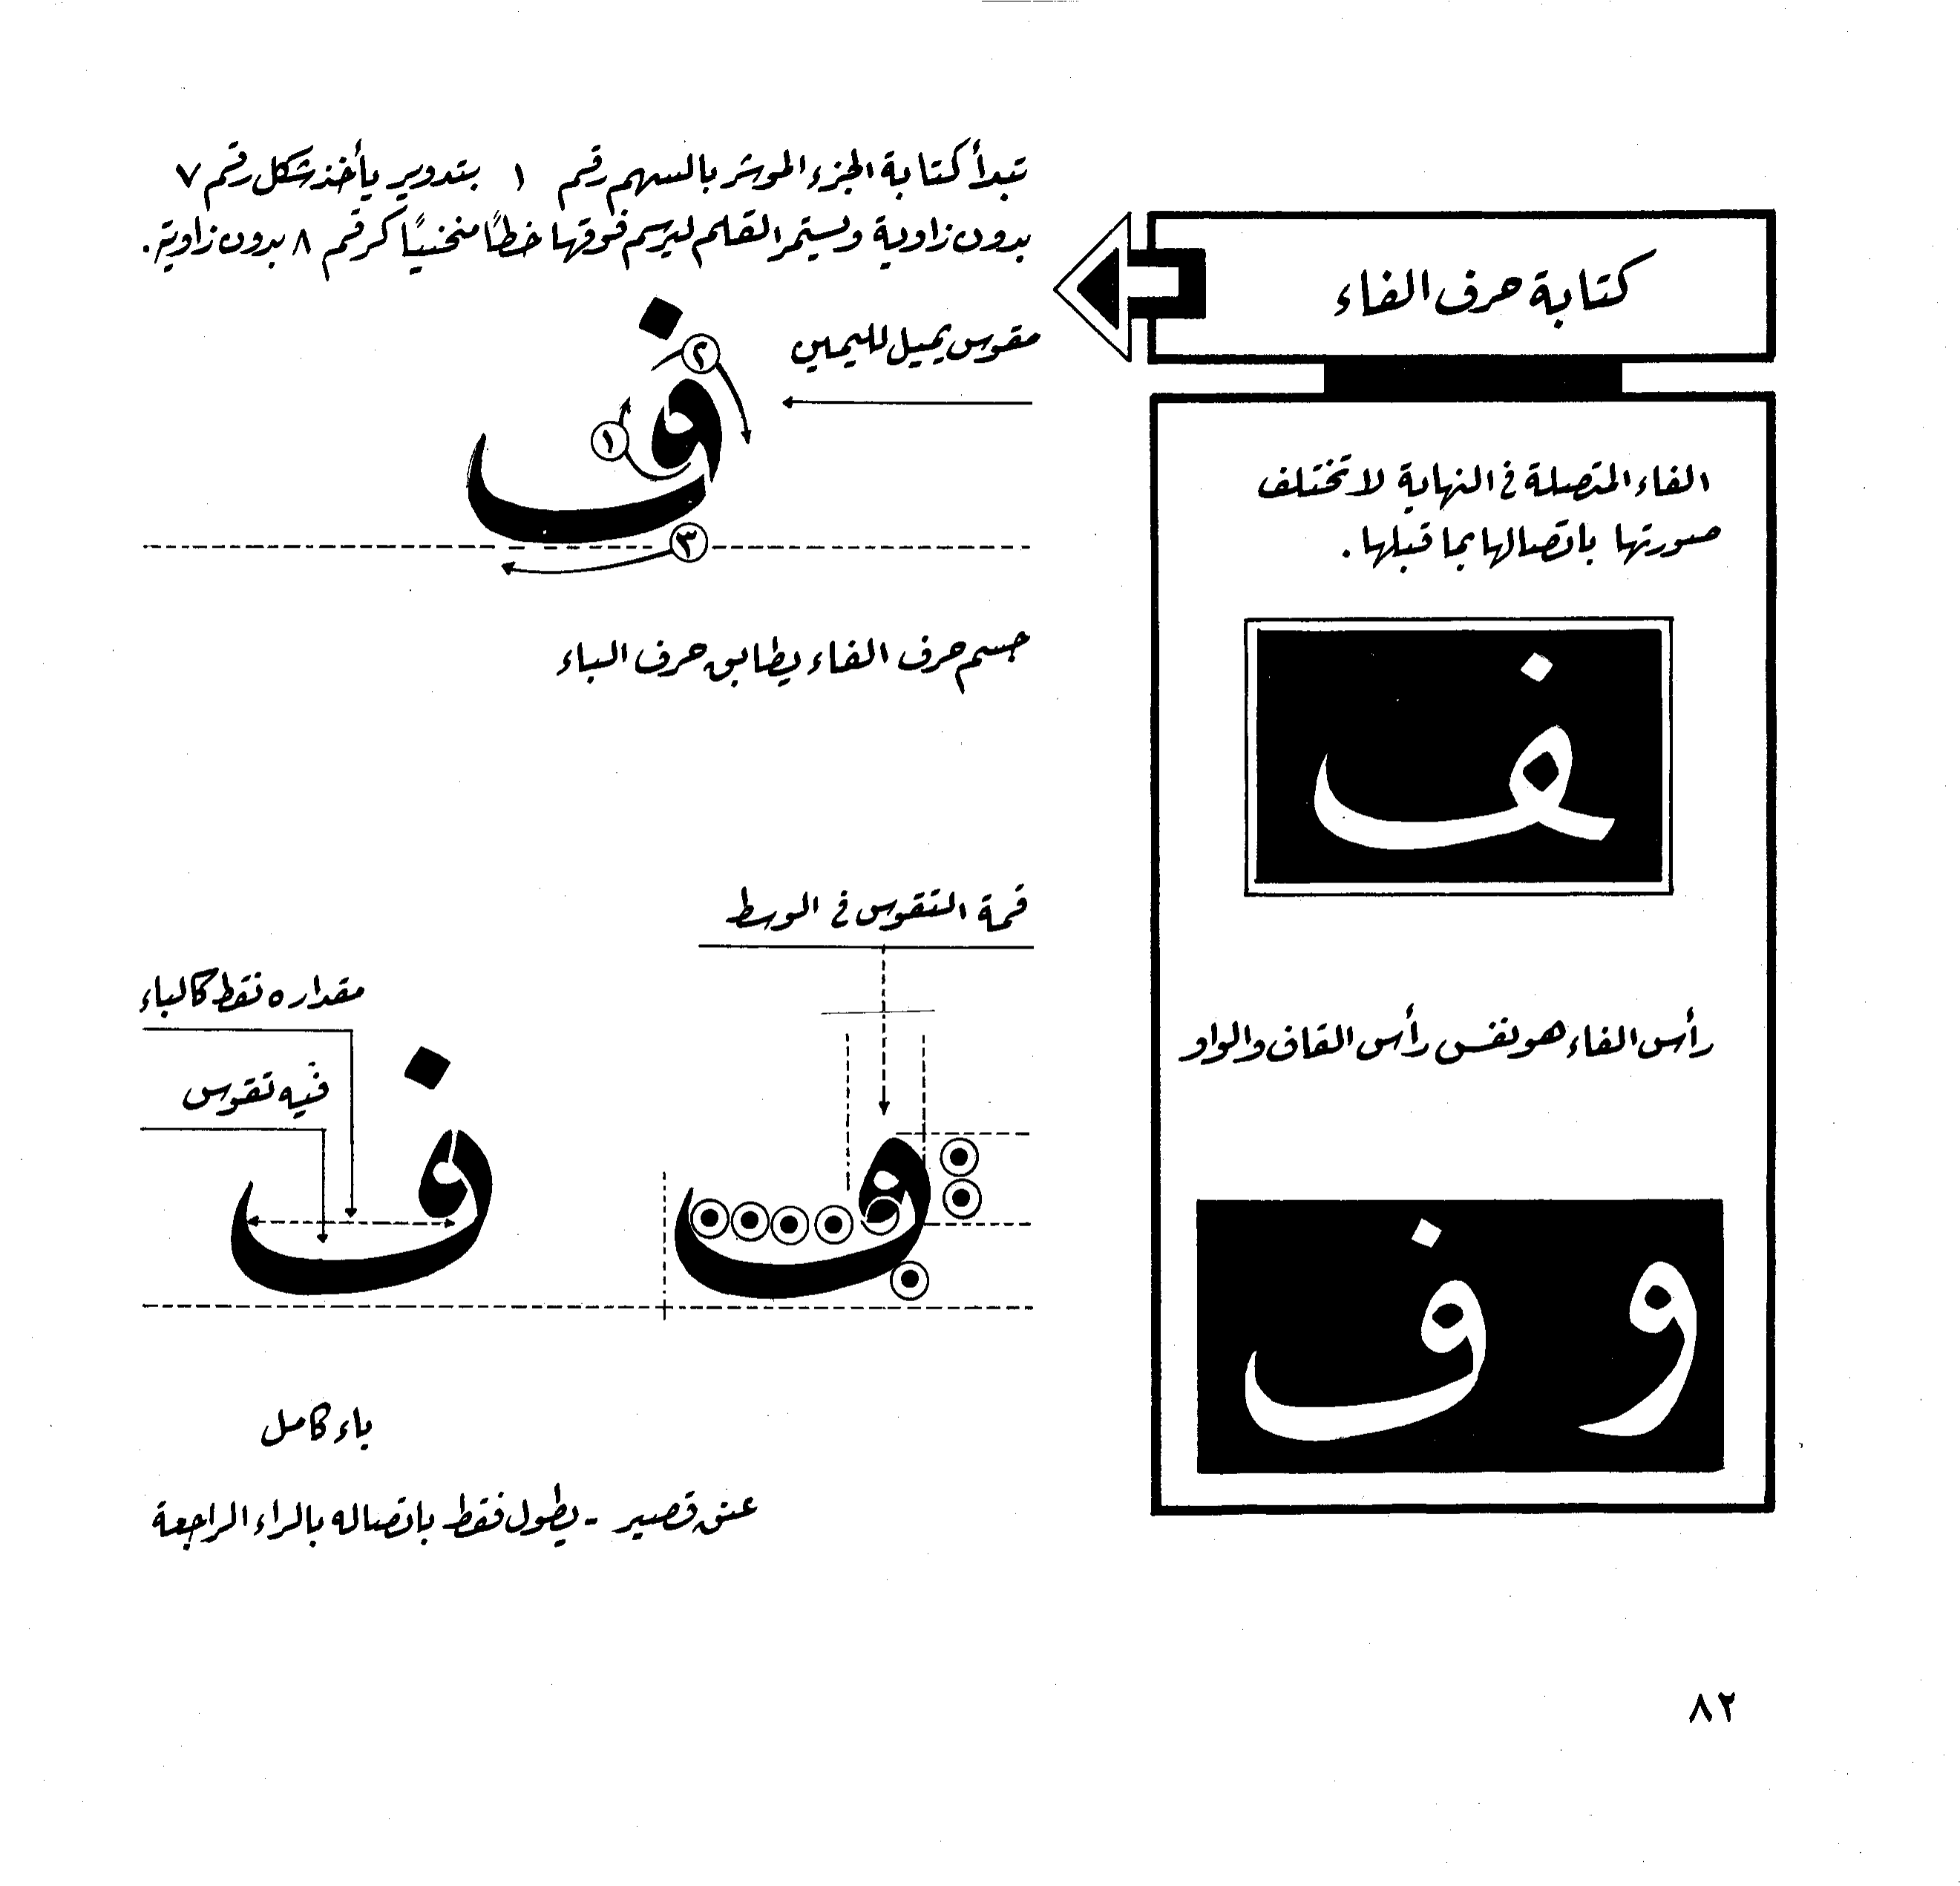 كتابة حرف الفاء
الفاء المتصلة في النهاية لا تختلف
صورتها باتصالها بما قبلها.
ف
رأس الفاء هو نفس رأس القاف والواو
و ف
تبدأ كتابة الجزء المؤشر بالسهم رقم ١ بتدوير يأخذ شكل رقم ٧
بدون زاوية ويستمر القلم ليرسم فوقها خطاً منحنياً كرقم ٨ بدون زاوية.
مقوس يميل لليمين
ف
٢
١
٣
جسم حرف الفاء يطابق حرف الباء
قمة التقوس في الوسط
مقداره ٥ نقط كالباء
فيه تقوس
ف ف
باء كامل
عنق قصير - يطول فقط باتصاله بالراء الراجعة
٨٢